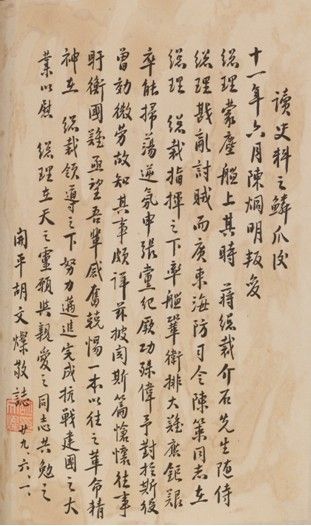 讀史料之鱗爪後
十一年六月陳炯明叛變
總理蒙塵艦上其時 蔣總裁介石先生隨侍
總理戡亂討賊而廣東海防司令陳策同志在
總理 總裁指揮之下率艦鞏衛排大難糜鉅艱
卒能掃蕩逆氣申張黨紀厥功殊偉予對於斯役
曾効微勞故知其事頗詳茲披閱斯篇愴懷往事
盱衡國難亟望吾輩感奮兢惕一本以往之革命精
神在 總裁領導之下努力邁進完成抗戰建國之大
業以慰 總理在天之靈願與親愛之同志共勉之
開平胡文燦敬誌 廿九、六、一、